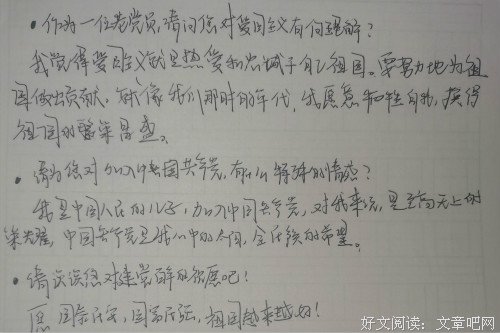 • 作为一位老党员，请问您对爱国主义有何理解？
我觉得爱国主义就是热爱和忠诚于自己祖国。要努力地为祖
国做出贡献。就像我们那时的年代，我愿意牺牲自我，换得
祖国的繁荣昌盛。
• 请问您对加入中国共产党，有什么特殊的情感？
我是中国人民的儿子，加入中国共产党，对我来说，是至高无上的
荣光，中国共产党是我心中的太阳，全民族的希望。
• 请谈谈您对建党的祝愿吧！
愿 国泰民安，国富民强，祖国越来越好！
好文阅读：文章吧网